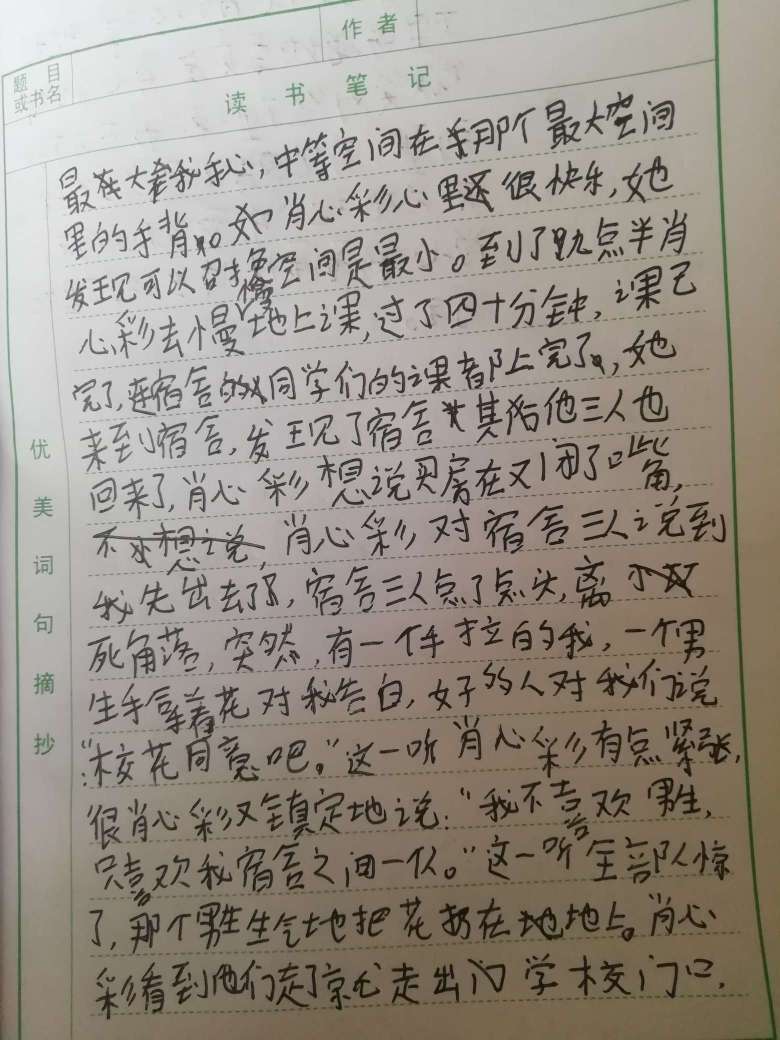 题目
或书名
作者
读书笔记
优美词句摘抄
最大牵我手心，中等空间在手那个最大空间
里的手背。如肖心彩心里还很快乐，她
发现可以召换空间是最小。到了九点半肖
心彩去慢地上课，过了四十分钟，课已
完了，连宿舍的同学们的课都上完了，她
来到宿舍，发现了宿舍其他三人也
回来了，肖心彩想说买房在又闭了嘴角，
不想说，肖心彩对宿舍三人说到
我先出去了，宿舍三人点了点头，离
死角落，突然，有一个手拉白的我，一个男
生手拿着花对我告白，好多的人对我们说
“校花同意吧。”这一听肖心彩有点紧张，
很肖心彩又镇定地说：“我不喜欢男生，
只喜欢我宿舍之间一个。”这一听全部人惊
了，那个男生生气地把花扔在地地上。肖心
彩看到他们走了就走出门学校门口，